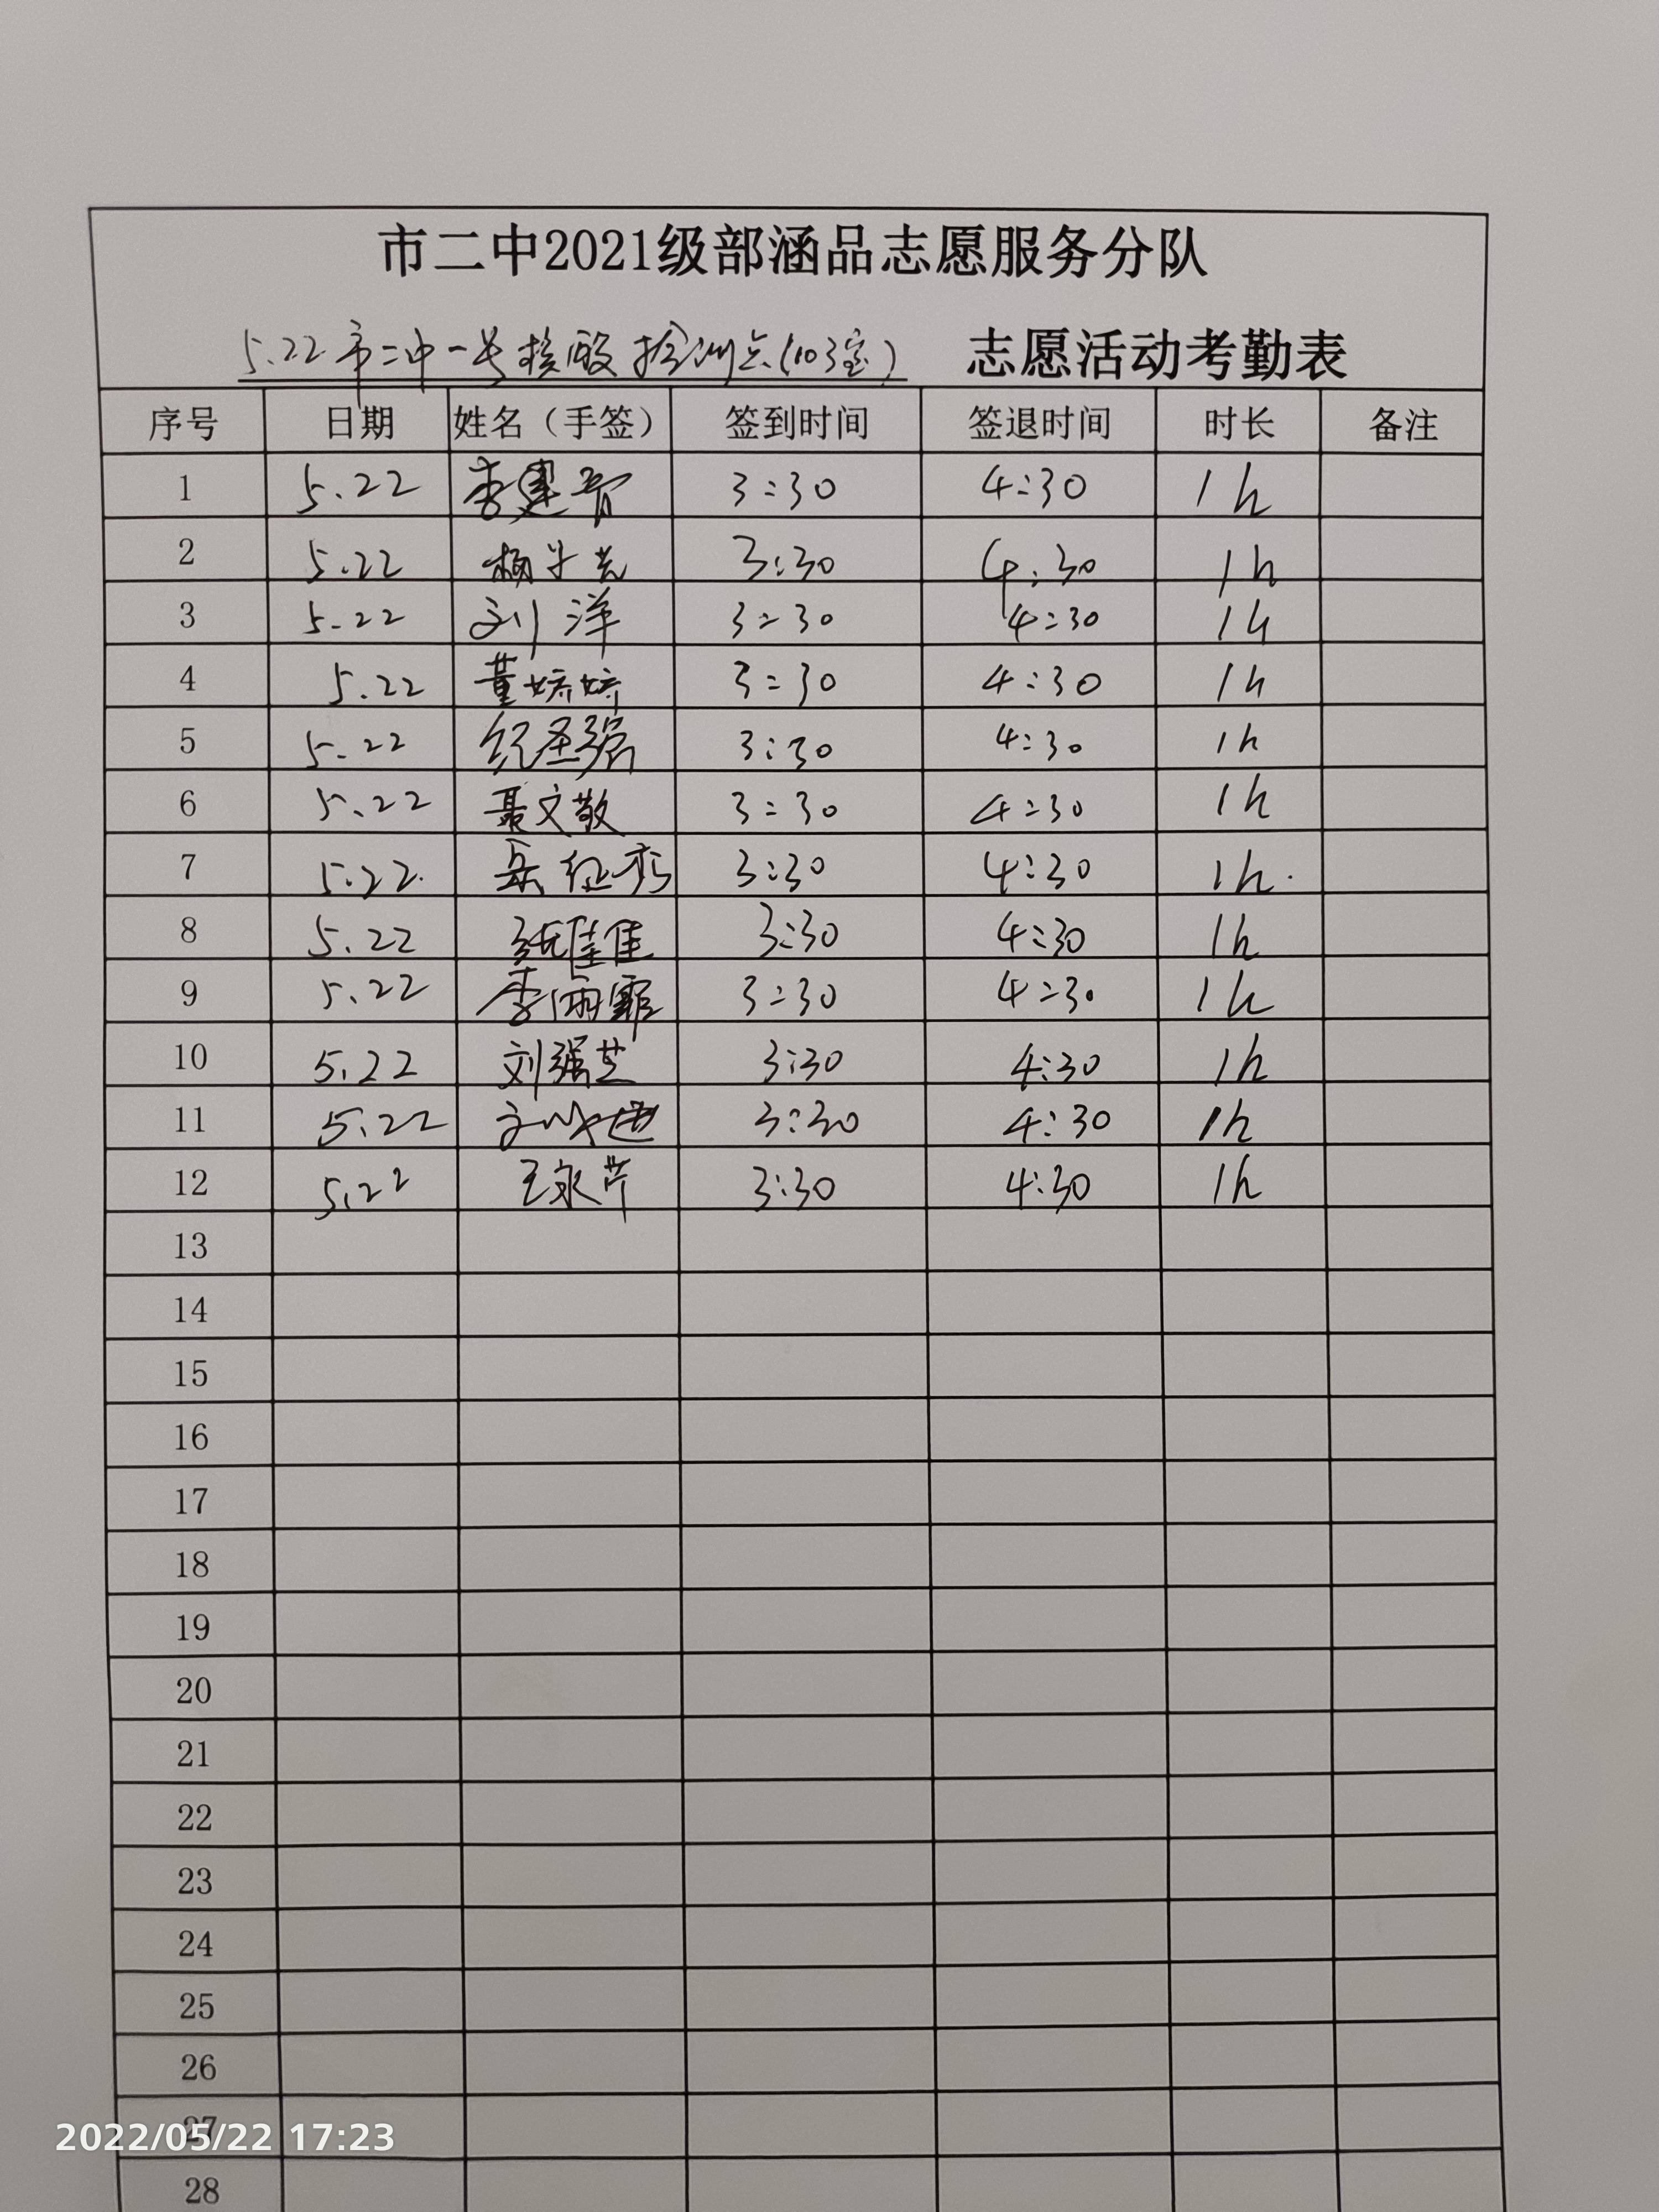 市二中2021级部涵品志愿服务分队
5.22市二中一号核酸检测点(103室) 志愿活动考勤表
序号 日期 姓名（手签） 签到时间 签退时间 时长 备注
1 5.22 3:30 4:30 1h
2 5.22 3:30 4:30 1h
3 5.22 刘洋 3:30 4:30 1h
4 5.22 董婷婷 3:30 4:30 1h
5 5.22 纪圣强 3:30 4:30 1h
6 5.22 聂文敬 3:30 4:30 1h
7 5.22. 3:30 4:30 1h.
8 5.22 张佳佳 3:30 4:30 1h
9 5.22 李雨霏 3:30 4:30 1h
10 5.22 刘强芝 3:30 4:30 1h
11 5.22 3:30 4:30 1h
12 5.22 王永芹 3:30 4:30 1h
13
14
15
16
17
18
19
20
21
22
23
24
25
26
27
2022/05/22 17:23
28